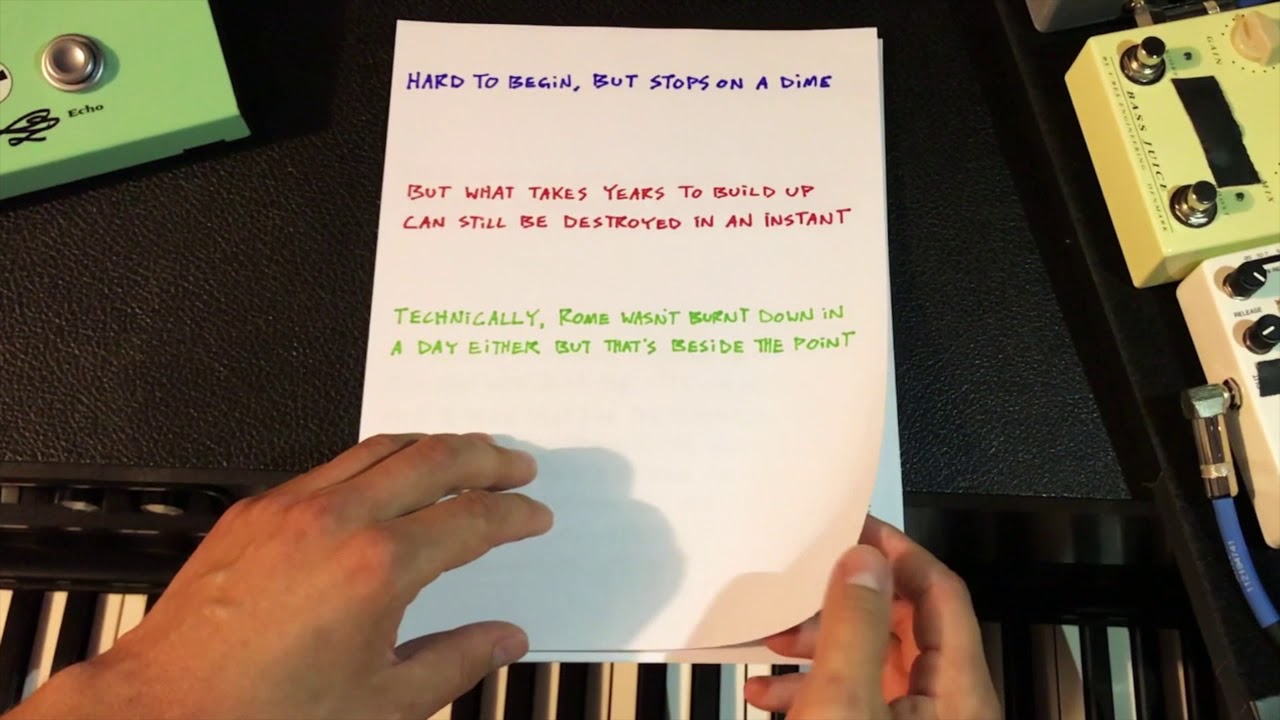 HARD TO BEGIN, BUT STOPS ON A DIME
BUT WHAT TAKES YEARS TO BUILD UP
CAN STILL BE DESTROYED IN AN INSTANT
TECHNICALLY, ROME WASN'T BURNT DOWN IN
A DAY EITHER BUT THAT'S BESIDE THE POINT
Echo
GAIN
BASS JUICE
MIX
RELEASE
11210474